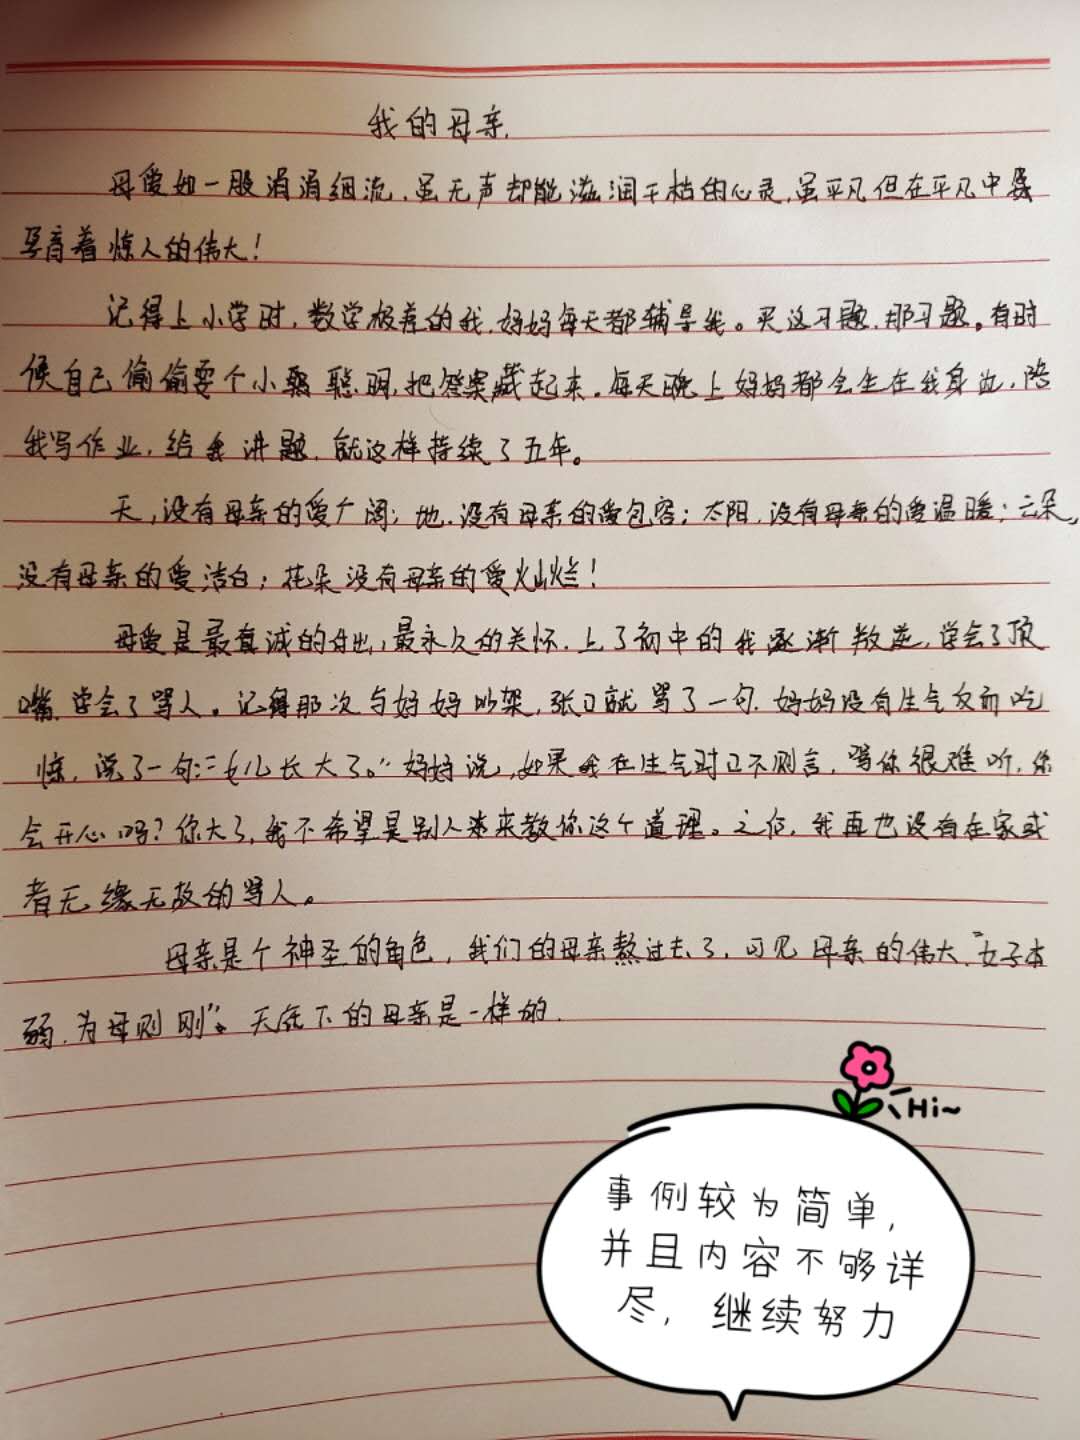 我的母亲.
母爱如一股涓涓细流,虽无声却能滋润干枯的心灵,虽平凡但在平凡中
孕育着惊人的伟大!
记得上小学时,数学极差的我,妈妈每天都辅导我。买这习题,那习题。有时
候自己偷偷耍个小聪明,把答案藏起来。每天晚上妈妈都会坐在我身边,陪
我写作业,给我讲题,就这样持续了五年。
天,没有母亲的爱广阔;地,没有母亲的爱包容;太阳,没有母亲的爱温暖;云朵,
没有母亲的爱洁白;花朵没有母亲的爱灿烂!
母爱是最真诚的付出,最永久的关怀.上了初中的我逐渐叛逆,学会了顶
嘴,学会了骂人。记得那次与妈妈吵架,张口就骂了一句.妈妈没有生气反而吃
惊,说了一句:"女儿长大了。"妈妈说,如果我在生气时口不则言,骂你很难听,你
会开心吗?你大了,我不希望是别人来教你这个道理。之后,我再也没有在家或
者无缘无故的骂人。
母亲是个神圣的角色,我们的母亲熬过去了,可见母亲的伟大."女子本
弱,为母则刚"。天底下的母亲是一样的.
Hi~
事例较为简单,
并且内容不够详
尽,继续努力